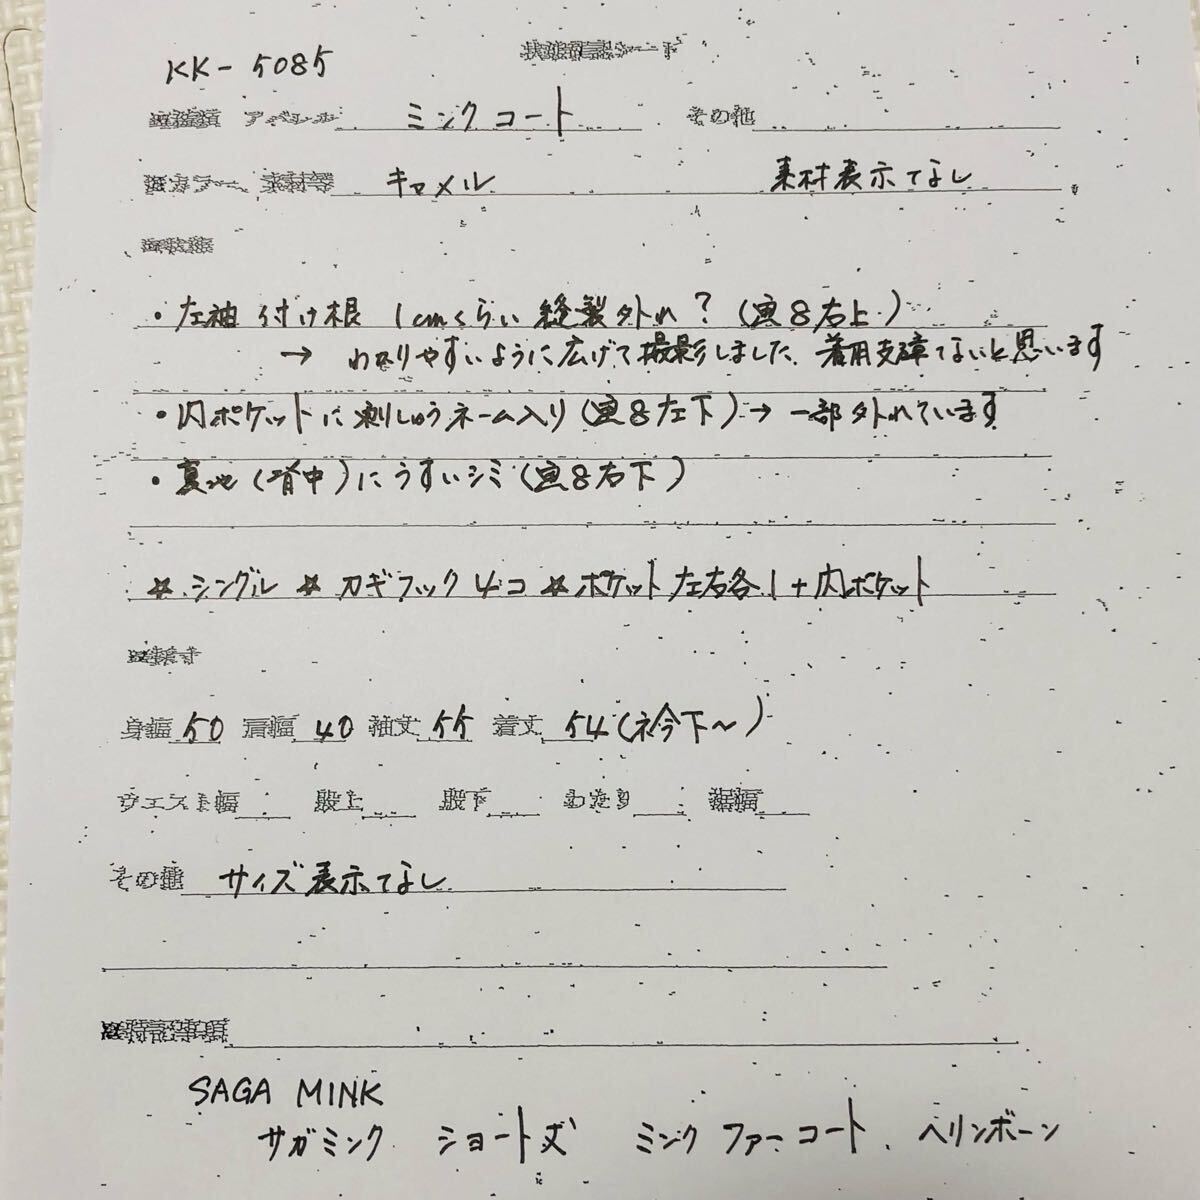 KK-5085
状態確認シート
アパレル ミンクコート その他
キャメル 素材表示なし
・左袖 付け根 1cmくらい 縫製外れ?(画8右上)
→ わかりやすいように広げて撮影しました、着用支障ないと思います
・内ポケットに刺しゅうネーム入り(画8左下)→ 一部外れています
・裏地(背中)にうすいシミ(画8右下)
☆シングル ☆カギフック4コ ☆ポケット左右各1+内ポケット
採寸
身幅 50 肩幅 40 袖丈 55 着丈 54(衿下~)
ウエスト幅 股上 股下 わたり 裾幅
その他 サイズ表示なし
※特記事項
SAGA MINK
サガミンク ショート丈 ミンクファーコート、ヘリンボーン